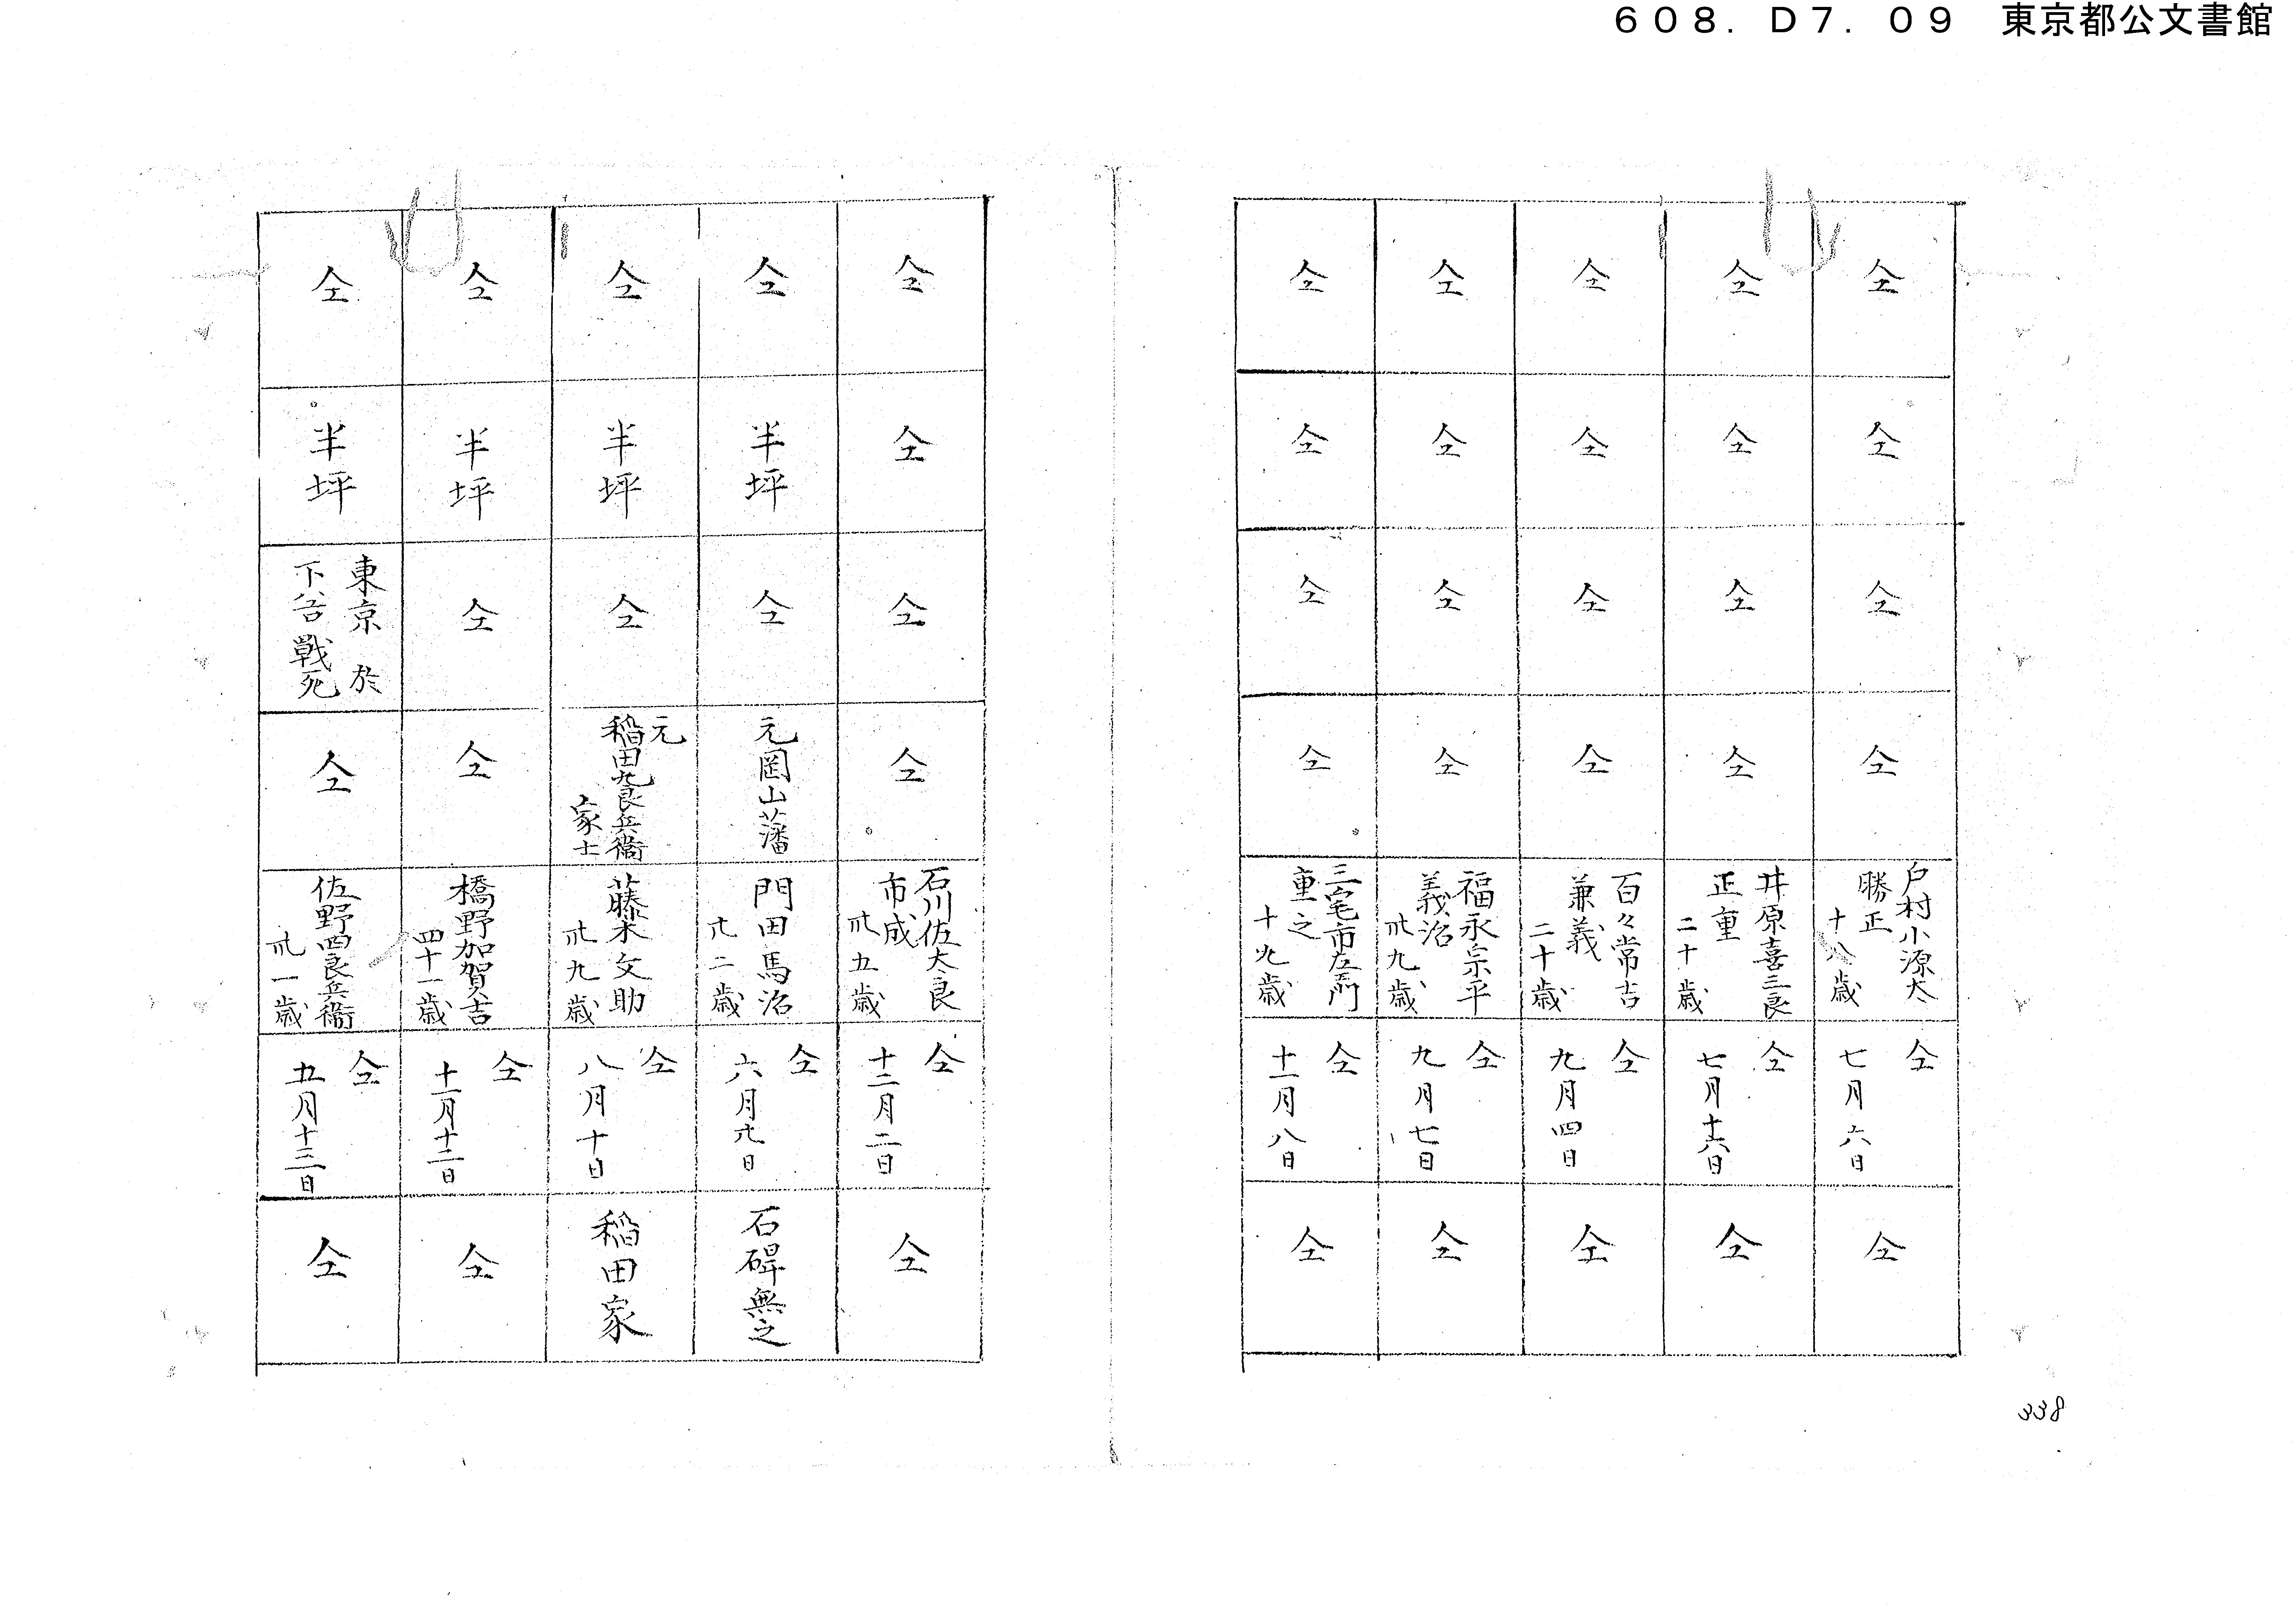 608. D7. 09 東京都公文書館
仝
仝
仝
仝
戸村小源太
勝正
十八歳
仝
七月六日
仝
仝
仝
仝
仝
井原喜三良
正重
二十歳
仝
七月十六日
仝
仝
仝
仝
仝
百々常吉
兼義
二十歳
仝
九月四日
仝
仝
仝
仝
仝
福永宗平
義治
卅九歳
仝
九月七日
仝
仝
仝
仝
仝
三宅市左衛門
重之
十九歳
仝
十一月八日
仝
仝
仝
仝
仝
石川佐太良
市成
卅五歳
仝
十二月二日
仝
仝
半坪
仝
元岡山藩
門田馬治
廿二歳
仝
六月廿日
石碑無之
仝
半坪
仝
元
稲田九良兵衞
家士
藤木文助
卅九歳
仝
八月十日
稲田家
仝
半坪
仝
仝
橋野加賀吉
四十一歳
仝
十一月十二日
仝
仝
半坪
東京 於
下谷戰死
仝
佐野四良兵衞
卅一歳
仝
五月十三日
仝
338